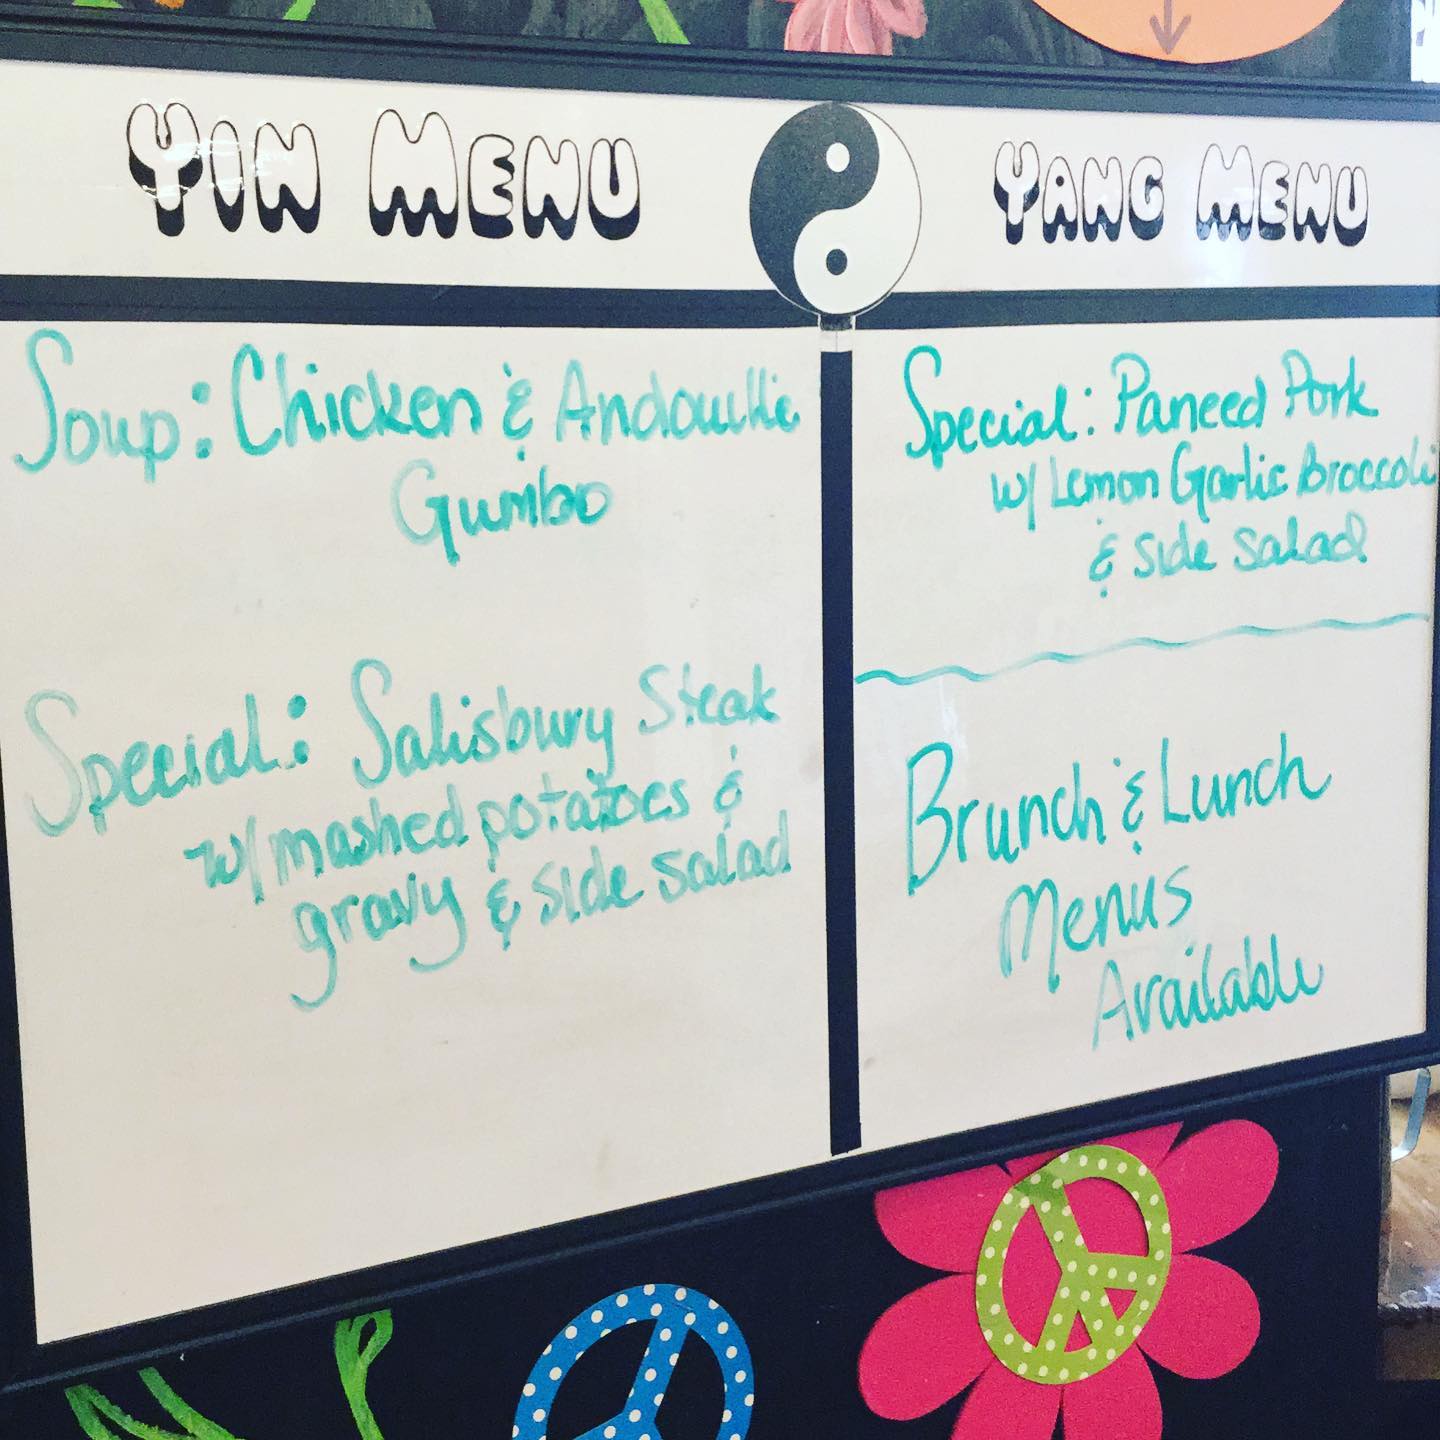 Yin Menu
Yang Menu
Soup: Chicken & Andouille
Gumbo
Special: Salisbury Steak
w/ mashed potatoes &
gravy & side salad
Special: Paneed Pork
w/ Lemon Garlic Broccoli
& side salad
Brunch & Lunch
Menus
Available